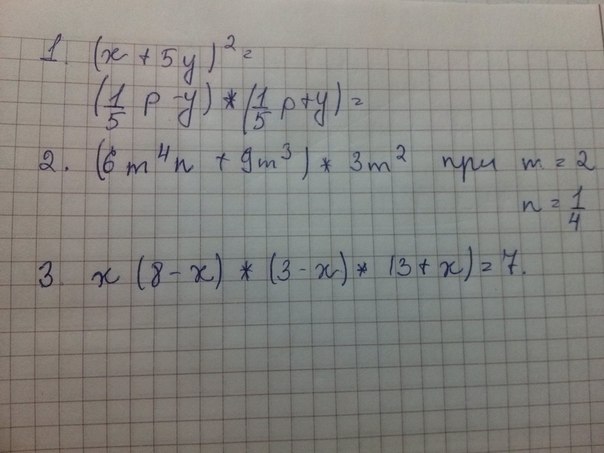 1. (x + 5y)² =
(1/5 p - y) * (1/5 p + y) =
2. (6m⁴n + 9m³) * 3m² при m = 2
n = 1/4
3. x (8 - x) * (3 - x) * (3 + x) = 7.